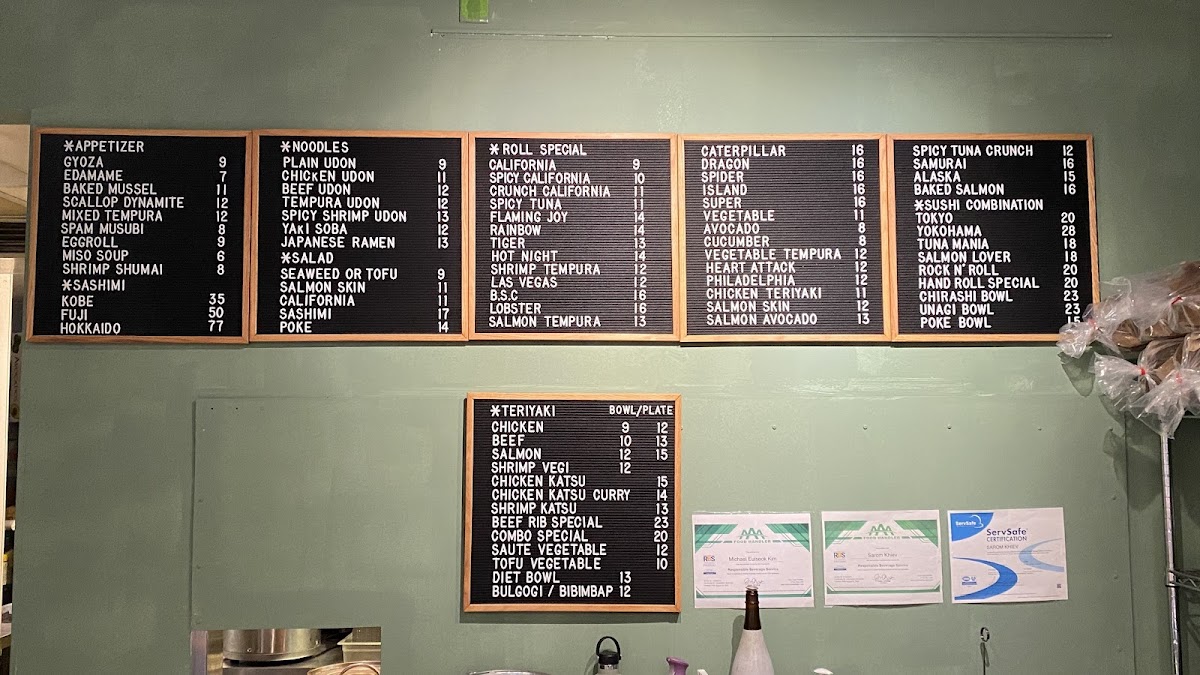 *APPETIZER
GYOZA 9
EDAMAME 7
BAKED MUSSEL 11
SCALLOP DYNAMITE 12
MIXED TEMPURA 12
SPAM MUSUBI 8
EGGROLL 9
MISO SOUP 6
SHRIMP SHUMAI 8
*SASHIMI
KOBE 35
FUJI 50
HOKKAIDO 77
*NOODLES
PLAIN UDON 9
CHICKEN UDON 11
BEEF UDON 12
TEMPURA UDON 12
SPICY SHRIMP UDON 13
YAKI SOBA 12
JAPANESE RAMEN 13
*SALAD
SEAWEED OR TOFU 9
SALMON SKIN 11
CALIFORNIA 11
SASHIMI 17
POKE 14
*ROLL SPECIAL
CALIFORNIA 9
SPICY CALIFORNIA 10
CRUNCH CALIFORNIA 11
SPICY TUNA 11
FLAMING JOY 14
RAINBOW 14
TIGER 13
HOT NIGHT 14
SHRIMP TEMPURA 12
LAS VEGAS 12
B.S.C 16
LOBSTER 16
SALMON TEMPURA 13
CATERPILLAR 16
DRAGON 16
SPIDER 16
ISLAND 16
SUPER 16
VEGETABLE 11
AVOCADO 8
CUCUMBER 8
VEGETABLE TEMPURA 12
HEART ATTACK 12
PHILADELPHIA 12
CHICKEN TERIYAKI 11
SALMON SKIN 12
SALMON AVOCADO 13
SPICY TUNA CRUNCH 12
SAMURAI 16
ALASKA 15
BAKED SALMON 16
*SUSHI COMBINATION
TOKYO 20
YOKOHAMA 28
TUNA MANIA 18
SALMON LOVER 18
ROCK N' ROLL 20
HAND ROLL SPECIAL 20
CHIRASHI BOWL 23
UNAGI BOWL 23
POKE BOWL 15
*TERIYAKI BOWL/PLATE
CHICKEN 9 12
BEEF 10 13
SALMON 12 15
SHRIMP VEGI 12
CHICKEN KATSU 15
CHICKEN KATSU CURRY 14
SHRIMP KATSU 13
BEEF RIB SPECIAL 23
COMBO SPECIAL 20
SAUTE VEGETABLE 12
TOFU VEGETABLE 10
DIET BOWL 13
BULGOGI / BIBIMBAP 12
AAA
FOOD HANDLER
RBS
Responsible Beverage Service
AAA
FOOD HANDLER
RBS
Responsible Beverage Service
ServSafe
ServSafe
CERTIFICATION